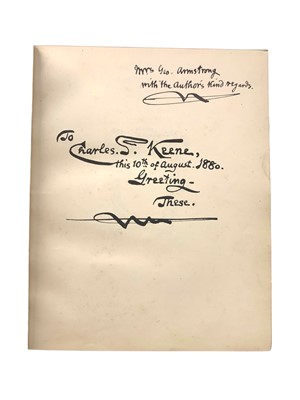 Mrs Geo. Armstrong
with the Author's kind regards.
To
Charles. S. Keene,
this 10th of August. 1880.
Greeting-
These.